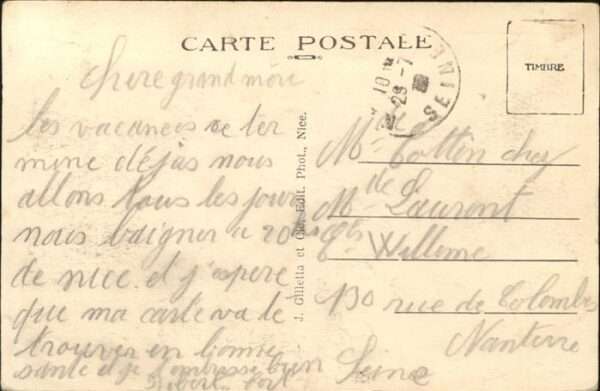 CARTE POSTALE
TIMBRE
10
29 - 7
SEINE
chere grand mere
les vacances se ter
mine déjas nous
allons tous les jours
nous baigner a 20
de nice et j'espere
que ma carte va te
trouver en bonne
santé et je t'embrasse bien
fort
J. Gilletta et Cie, Edit. Phot., Nice.
Mme Cotten chez
de
Mme Laurent
Willeme
130 rue de Colombes
Nanterre
Seine